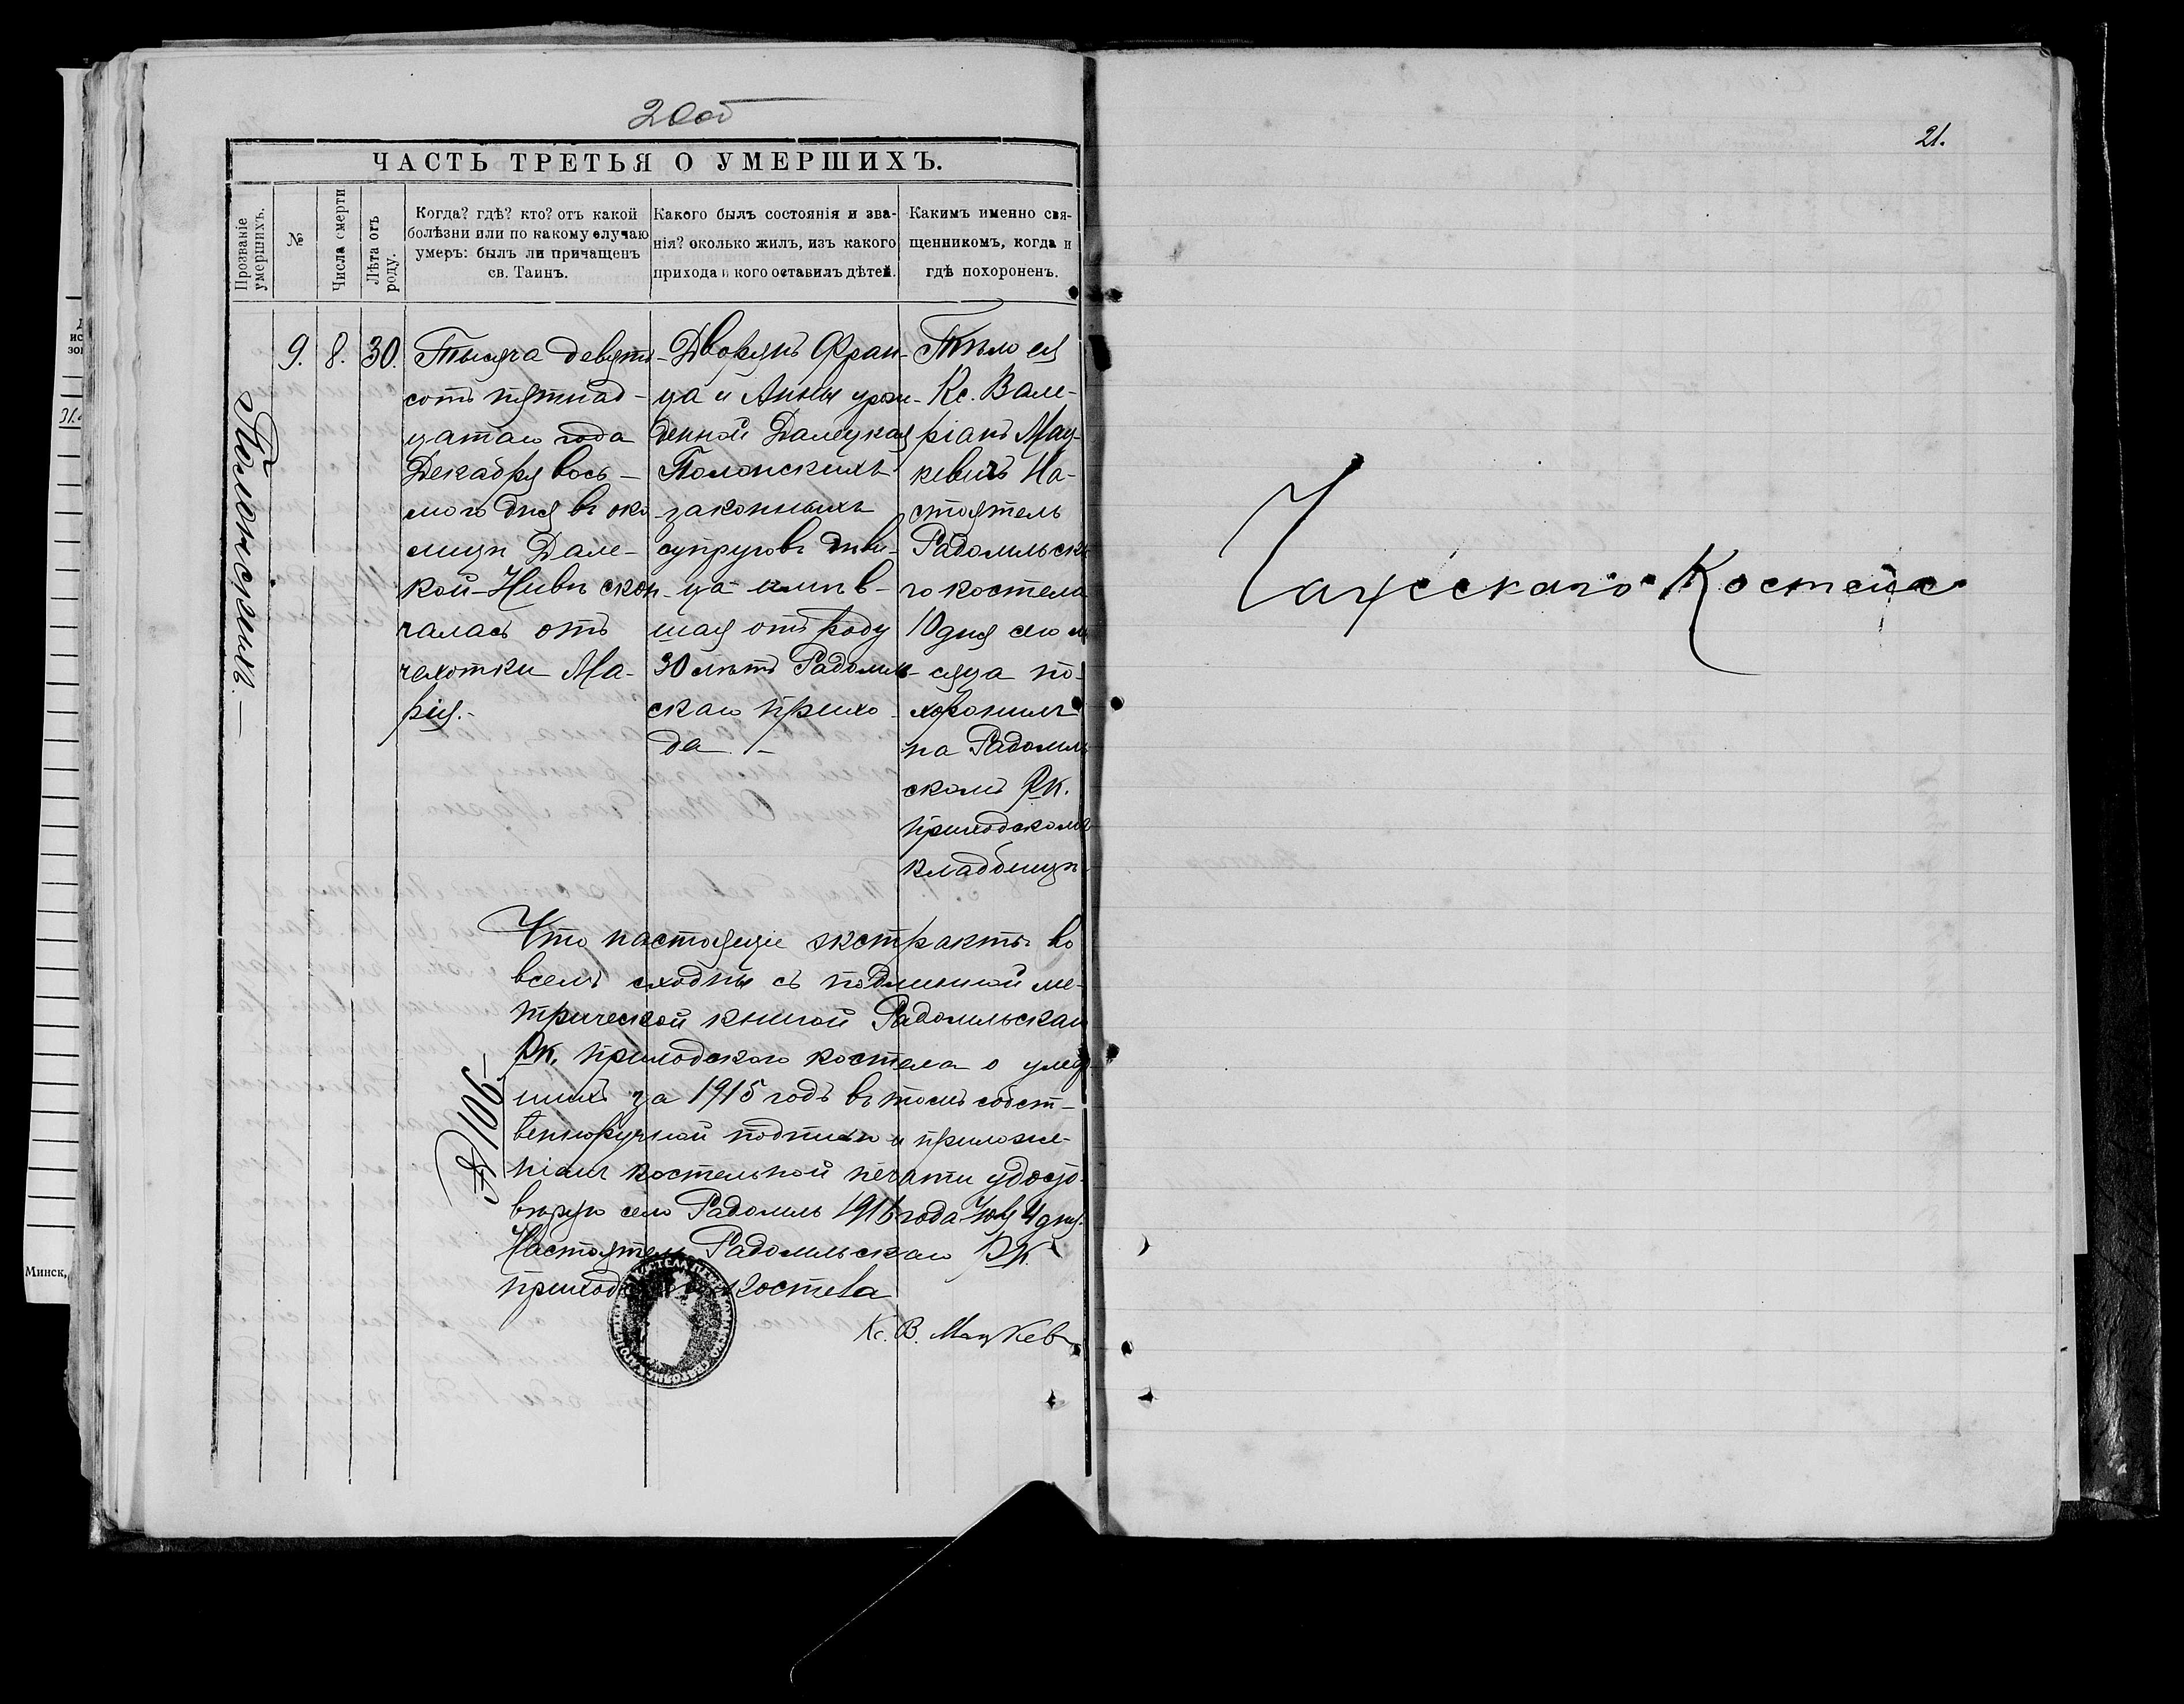 20об
ЧАСТЬ ТРЕТЬЯ О УМЕРШИХЪ.
Прозваніе умершихъ.
№
Числа смерти
Лѣта отъ роду.
Когда? гдѣ? кто? отъ какой
болѣзни или по какому случаю
умеръ: былъ ли причащенъ
св. Таинъ.
Какого былъ состоянія и зва-
нія? сколько жилъ, изъ какого
прихода и кого оставилъ дѣтей.
Какимъ именно свя-
щенникомъ, когда и
гдѣ похороненъ.
Полонскихъ.
9.
8.
30.
Тысяча девять-
сотъ пятнад-
цатаго года
Декабря вось-
мого дня въ око-
лицѣ Дале-
кой-Нивѣ скон-
чалась отъ
чахотки Ма-
рія.
Дворянъ Фран-
ца и Анны урож-
денной Далецкая
Полонскихъ
законныхъ
супруговъ дѣви-
ца имѣв-
шая отъ роду
30 лѣтъ Радомль-
скаго прихо-
да.
Тѣло ея
Кс. Вале-
ріанъ Мац-
кевичъ На-
стоятель
Радомльска
го костела
10 дня сего м
сяца по-
хоронилъ
на Радомль
скомъ Рк.
приходскомъ
кладбищѣ
Что настоящіе экстракты во
всемъ сходны съ подлинной ме-
трической книгой Радомльскаго
Рк. приходского костела о умер
шихъ за 1915 годъ въ томъ собст-
венноручной подписью и приложе-
ніемъ костельной печати удосто-
вѣряю село Радомль 1916 года 4 дня.
№ 106
Настоятель Радомльскаго Рк.
приход костела
Кс. В. Мацкевич
21.
Чаусскаго Костела
Минск,